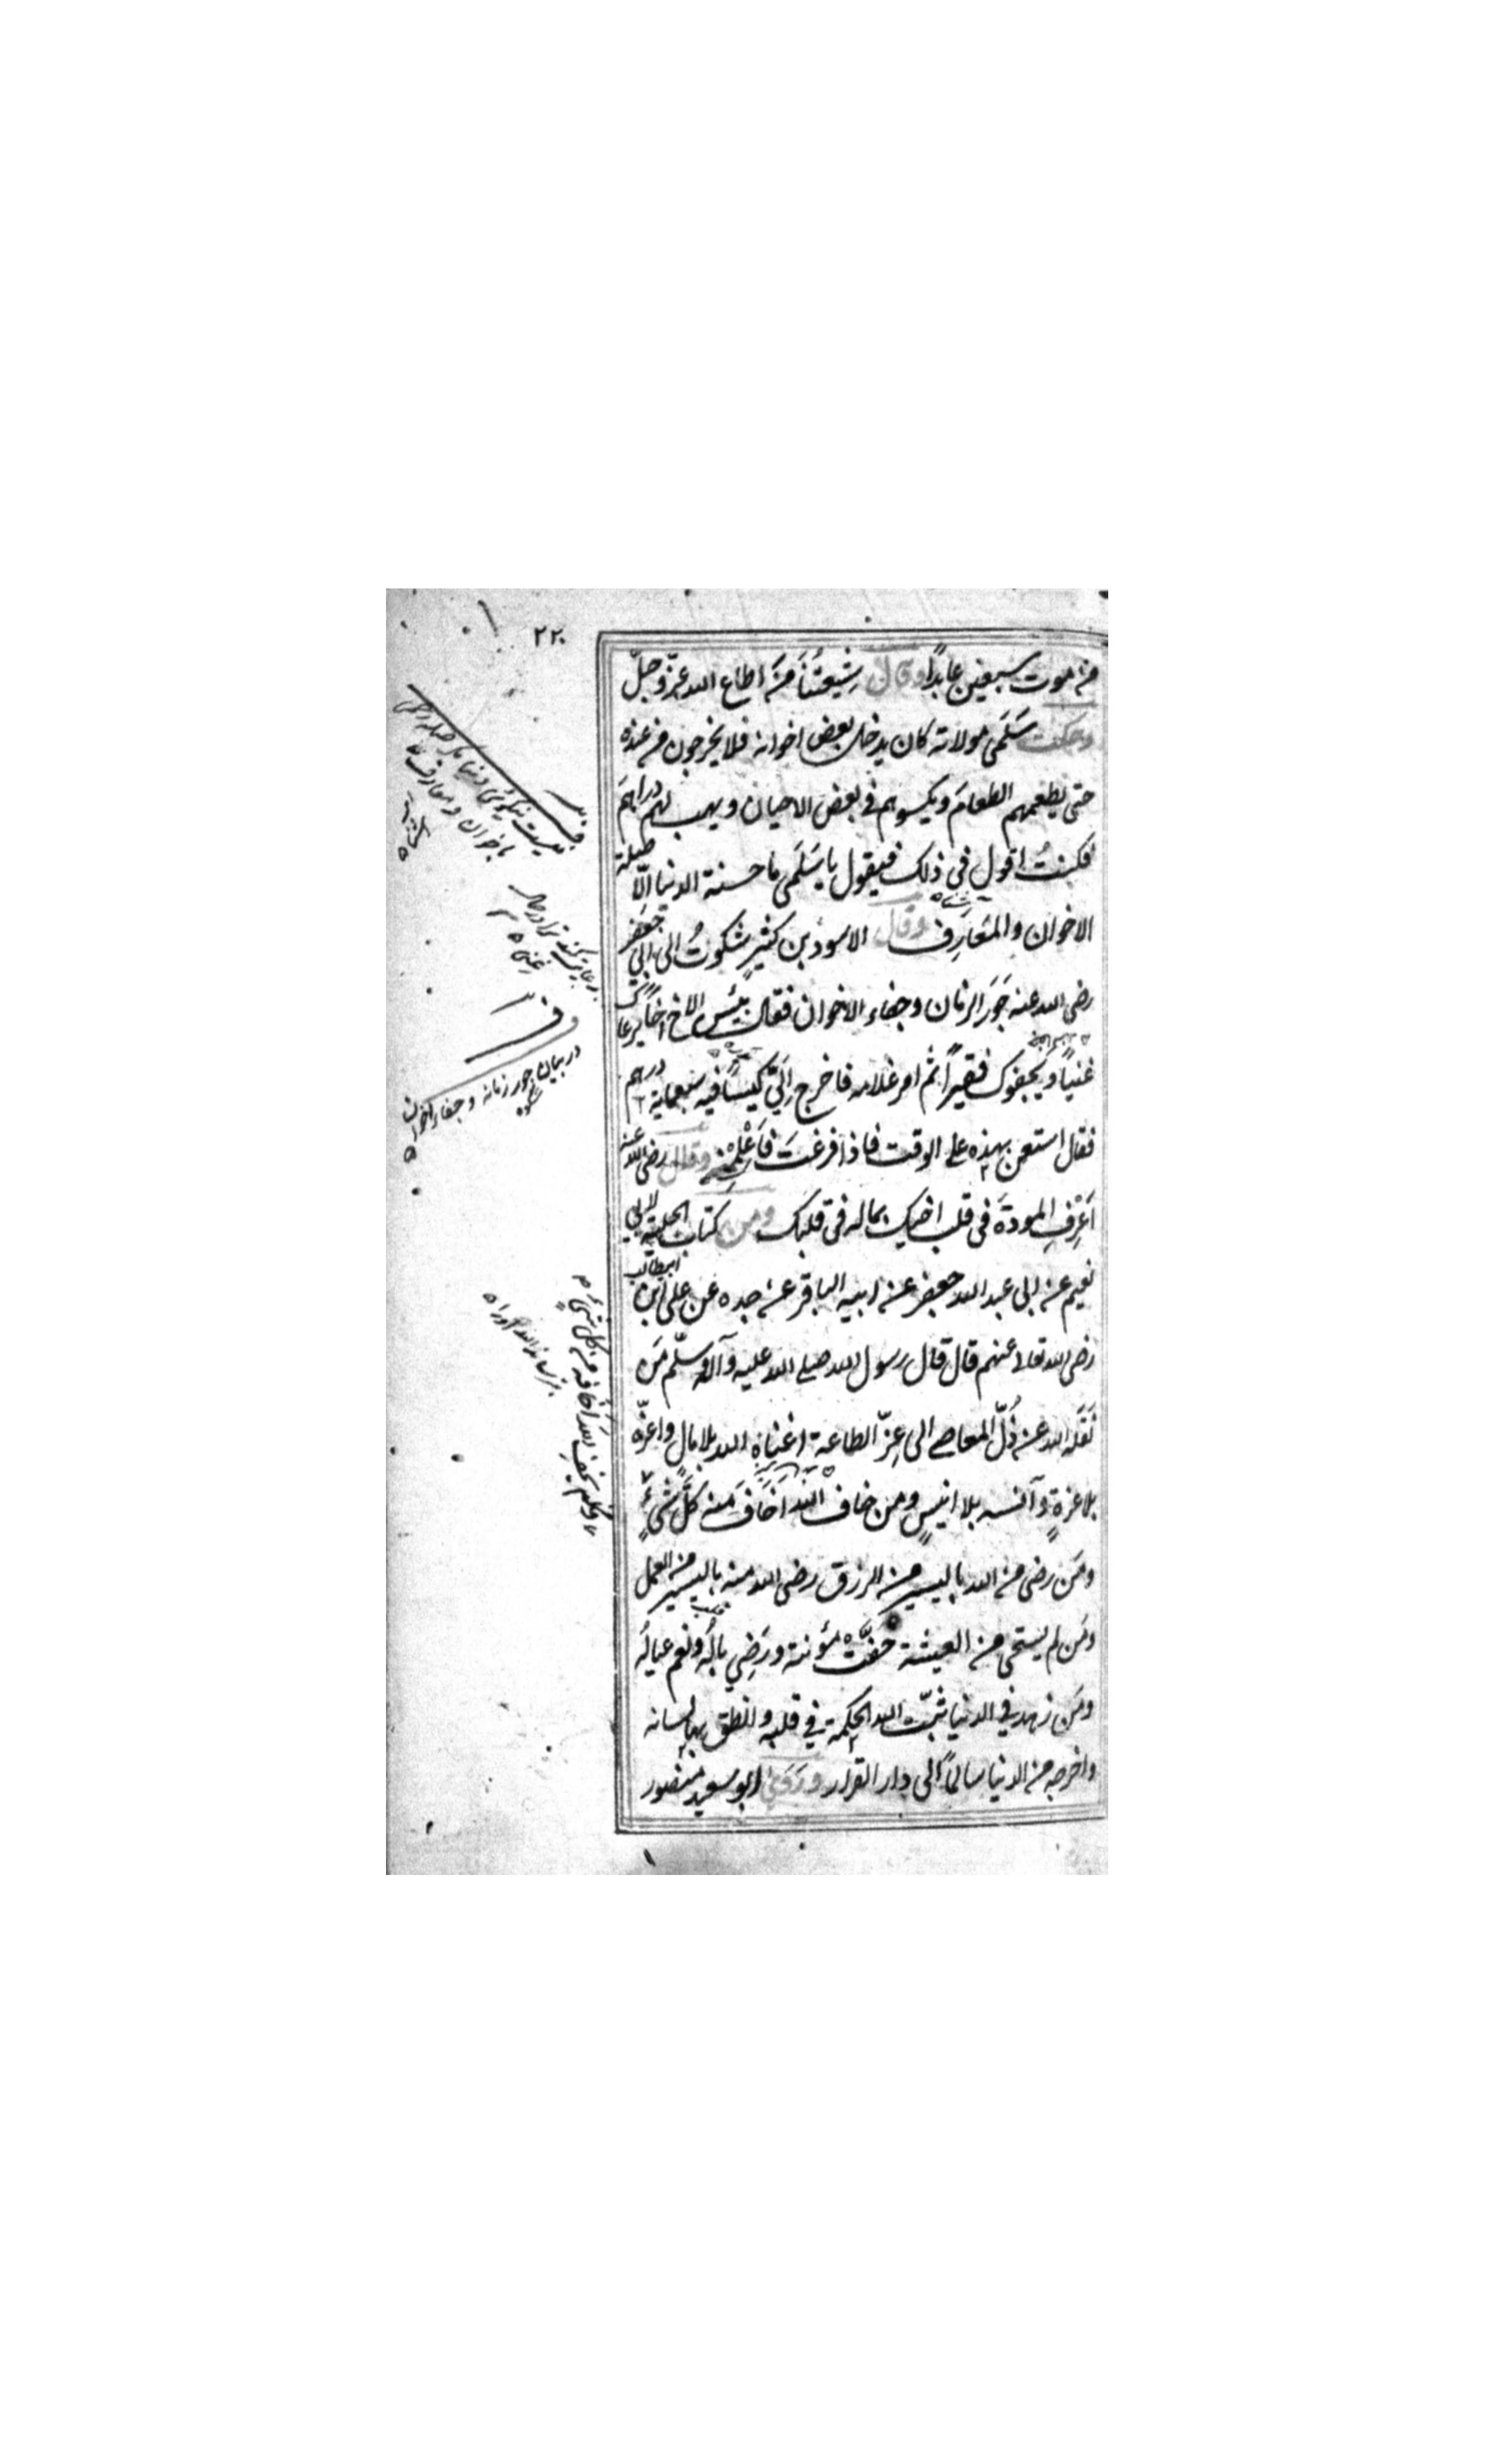 ٢٢٠
من موت سبعين عابدًا وقال شِيعَتُنا مَنْ اطاع الله عزّ وجلّ
وحكت سَلمَى مولاته كان يدخل بعض اخوانه فلا يخرجون من عنده
حتى يطعمهم الطعامَ ويكسوهم فى بعض الاحيان ويهب لهم دراهمَ
فكنتُ اقول فى ذلك فيقول يا سَلمَى ما حسنة الدنيا الّا صلة
الاخوان والمَعَارِف وقال الاسود بن كثيرٍ شكوتُ الى ابى جعفر
رضى الله عنه جَوَر الزمان وجفاء الاخوان فقال بِئسَ الاخ اخًا يرعاك
غنيًا ويجفوك فقيرًا ثم امر غلامه فاخرج اِلَيَّ كيسًا فيه سبعمایة درهم
فقال استعن بهذه على الوقت فاذا فرغتَ فَاَعْلِمْنِى وقال رضى الله عنه
اَعْرِفِ المودةَ فى قلب اخيك بماله فى قلبك ومن كتاب الحلية لابى
نعيم عن ابى عبد الله جعفر عن ابيه الباقر عن جده عن على ابن ابيطالب
رضى الله تعالى عنهم قال قال رسول الله صلى الله عليه وآله وسلّم مَن
نَقَله الله عن ذُلّ المعاصى الى عِزّ الطاعة اغناه الله بلا مالٍ واعزّه
بلا عزةٍ وآنسه بلا انيسٍ ومن خاف اللهَ اَخَافَ منه كلَّ شئٍ
ومَن رضى من الله باليسير من الرزق رضى الله منه باليسير من العمل
ومَن لم يستحى من المعيشة خَفَّت مؤنته ورَضِىَ بالُه ونعم عيالُه
ومَن زهد فى الدنيا ثبّت الله الحكمة فى قلبه وانطق بها لسانه
واخرجه من الدنيا سالمًا الى دار القرار ورَوَىٰ ابو سعيد منصور
نيست نيكوئى دنيا مگر صله رحمى
باخوان و معارف
رعايت كند ترا در حال
غنى
در بيان جور زمانه و جفاء اخوان
ومن لم يخف الله اخافه من كل شئ
بترساند الله او را